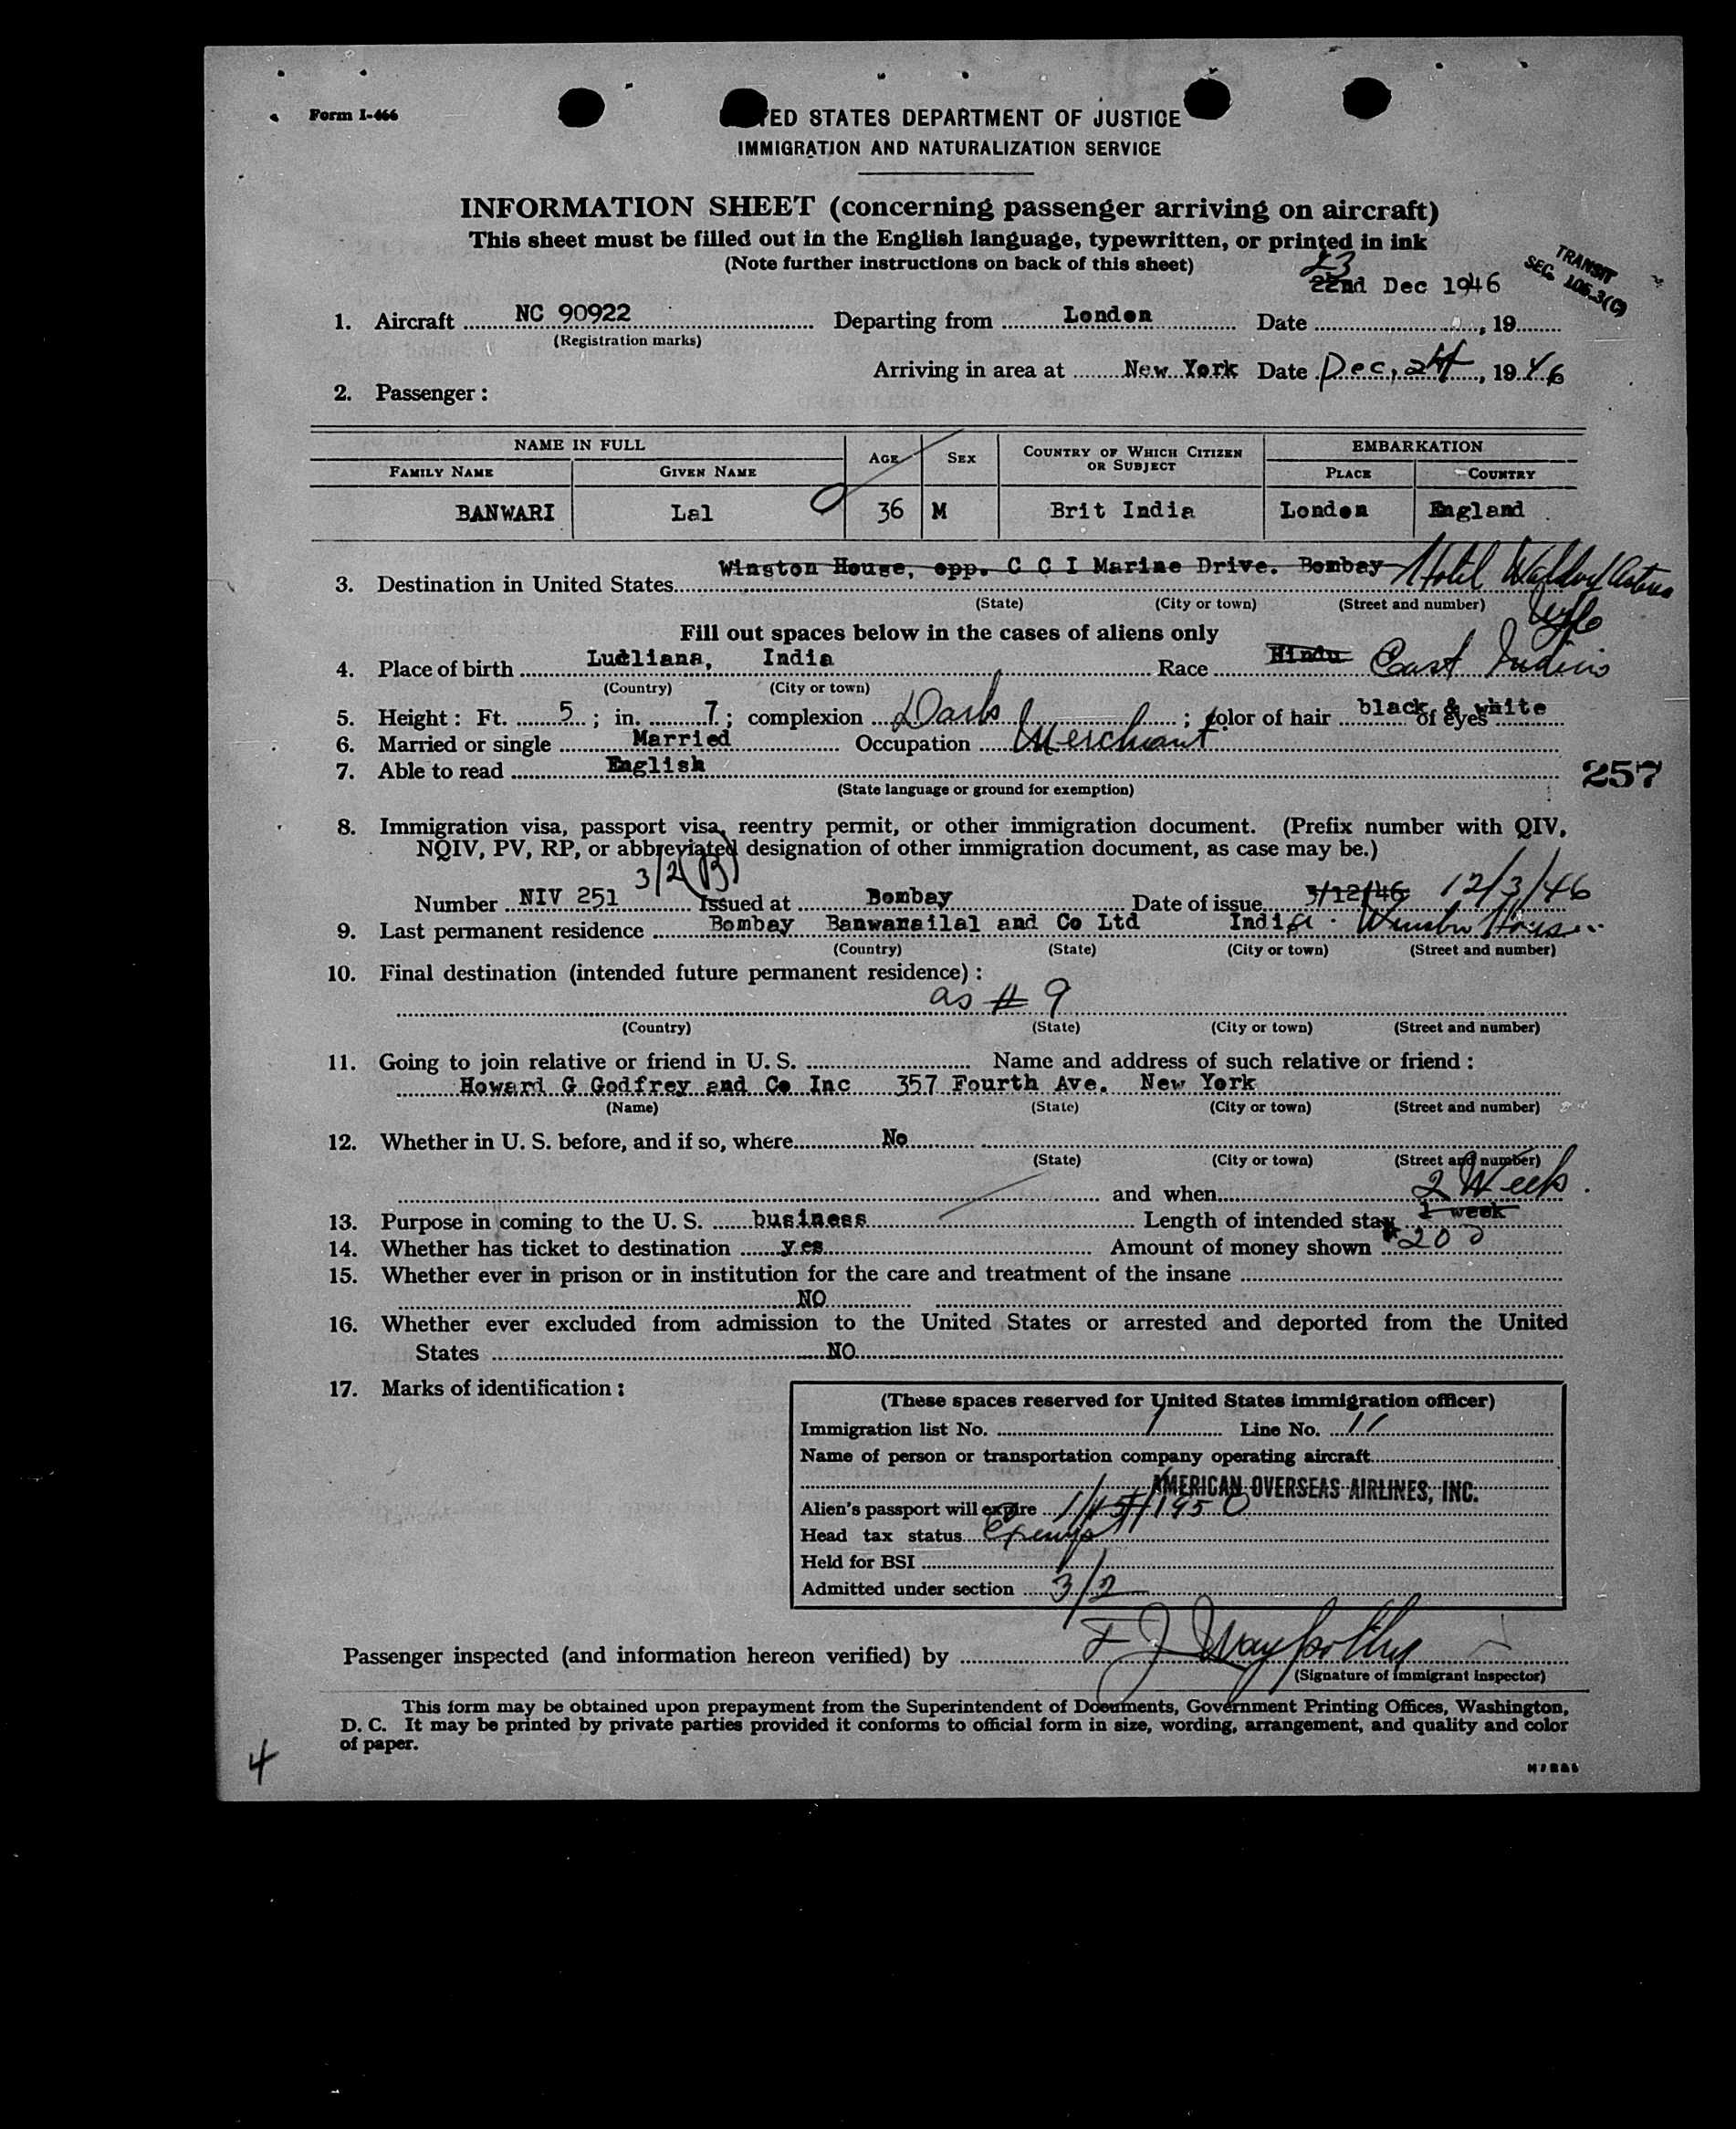 Form I-466
UNITED STATES DEPARTMENT OF JUSTICE
IMMIGRATION AND NATURALIZATION SERVICE
INFORMATION SHEET (concerning passenger arriving on aircraft)
This sheet must be filled out in the English language, typewritten, or printed in ink
(Note further instructions on back of this sheet)
TRANSIT
SEC. 105.3(C)
23
22nd Dec 1946
1. Aircraft NC 90922 Departing from London Date , 19
(Registration marks)
Arriving in area at New York Date Dec, 24, 1946
2. Passenger:
NAME IN FULL AGE SEX COUNTRY OF WHICH CITIZEN OR SUBJECT EMBARKATION
FAMILY NAME GIVEN NAME PLACE COUNTRY
BANWARI Lal 36 M Brit India London England
Winston House, opp. C C I Marine Drive. Bombay Hotel Waldorf Astoria
3. Destination in United States
(State) (City or town) (Street and number)
Fill out spaces below in the cases of aliens only
4. Place of birth Ludliana, India Race Hindu East Indian
(Country) (City or town)
5. Height: Ft. 5; in. 7; complexion Dark; color of hair black & white of eyes
6. Married or single Married Occupation Merchant
7. Able to read English
257
(State language or ground for exemption)
8. Immigration visa, passport visa, reentry permit, or other immigration document. (Prefix number with QIV,
NQIV, PV, RP, or abbreviated designation of other immigration document, as case may be.)
3/2(B)
Number NIV 251 Issued at Bombay Date of issue 3/12/46 12/3/46
9. Last permanent residence Bombay Banwarilal and Co Ltd India. Winston House
(Country) (State) (City or town) (Street and number)
10. Final destination (intended future permanent residence):
as # 9
(Country) (State) (City or town) (Street and number)
11. Going to join relative or friend in U. S. Name and address of such relative or friend:
Howard G Godfrey and Co Inc 357 Fourth Ave. New York
(Name) (State) (City or town) (Street and number)
12. Whether in U. S. before, and if so, where No
(State) (City or town) (Street and number)
and when
2 Week
13. Purpose in coming to the U. S. business Length of intended stay 1 week
14. Whether has ticket to destination yes Amount of money shown $200
15. Whether ever in prison or in institution for the care and treatment of the insane
NO
16. Whether ever excluded from admission to the United States or arrested and deported from the United
States NO
17. Marks of identification:
(These spaces reserved for United States immigration officer)
Immigration list No. 1 Line No. 11
Name of person or transportation company operating aircraft
AMERICAN OVERSEAS AIRLINES, INC.
Alien's passport will expire 1/15/1950
Head tax status Exempt
Held for BSI
Admitted under section 3/2
Passenger inspected (and information hereon verified) by F J
(Signature of immigrant inspector)
This form may be obtained upon prepayment from the Superintendent of Documents, Government Printing Offices, Washington,
D. C. It may be printed by private parties provided it conforms to official form in size, wording, arrangement, and quality and color
of paper.
4